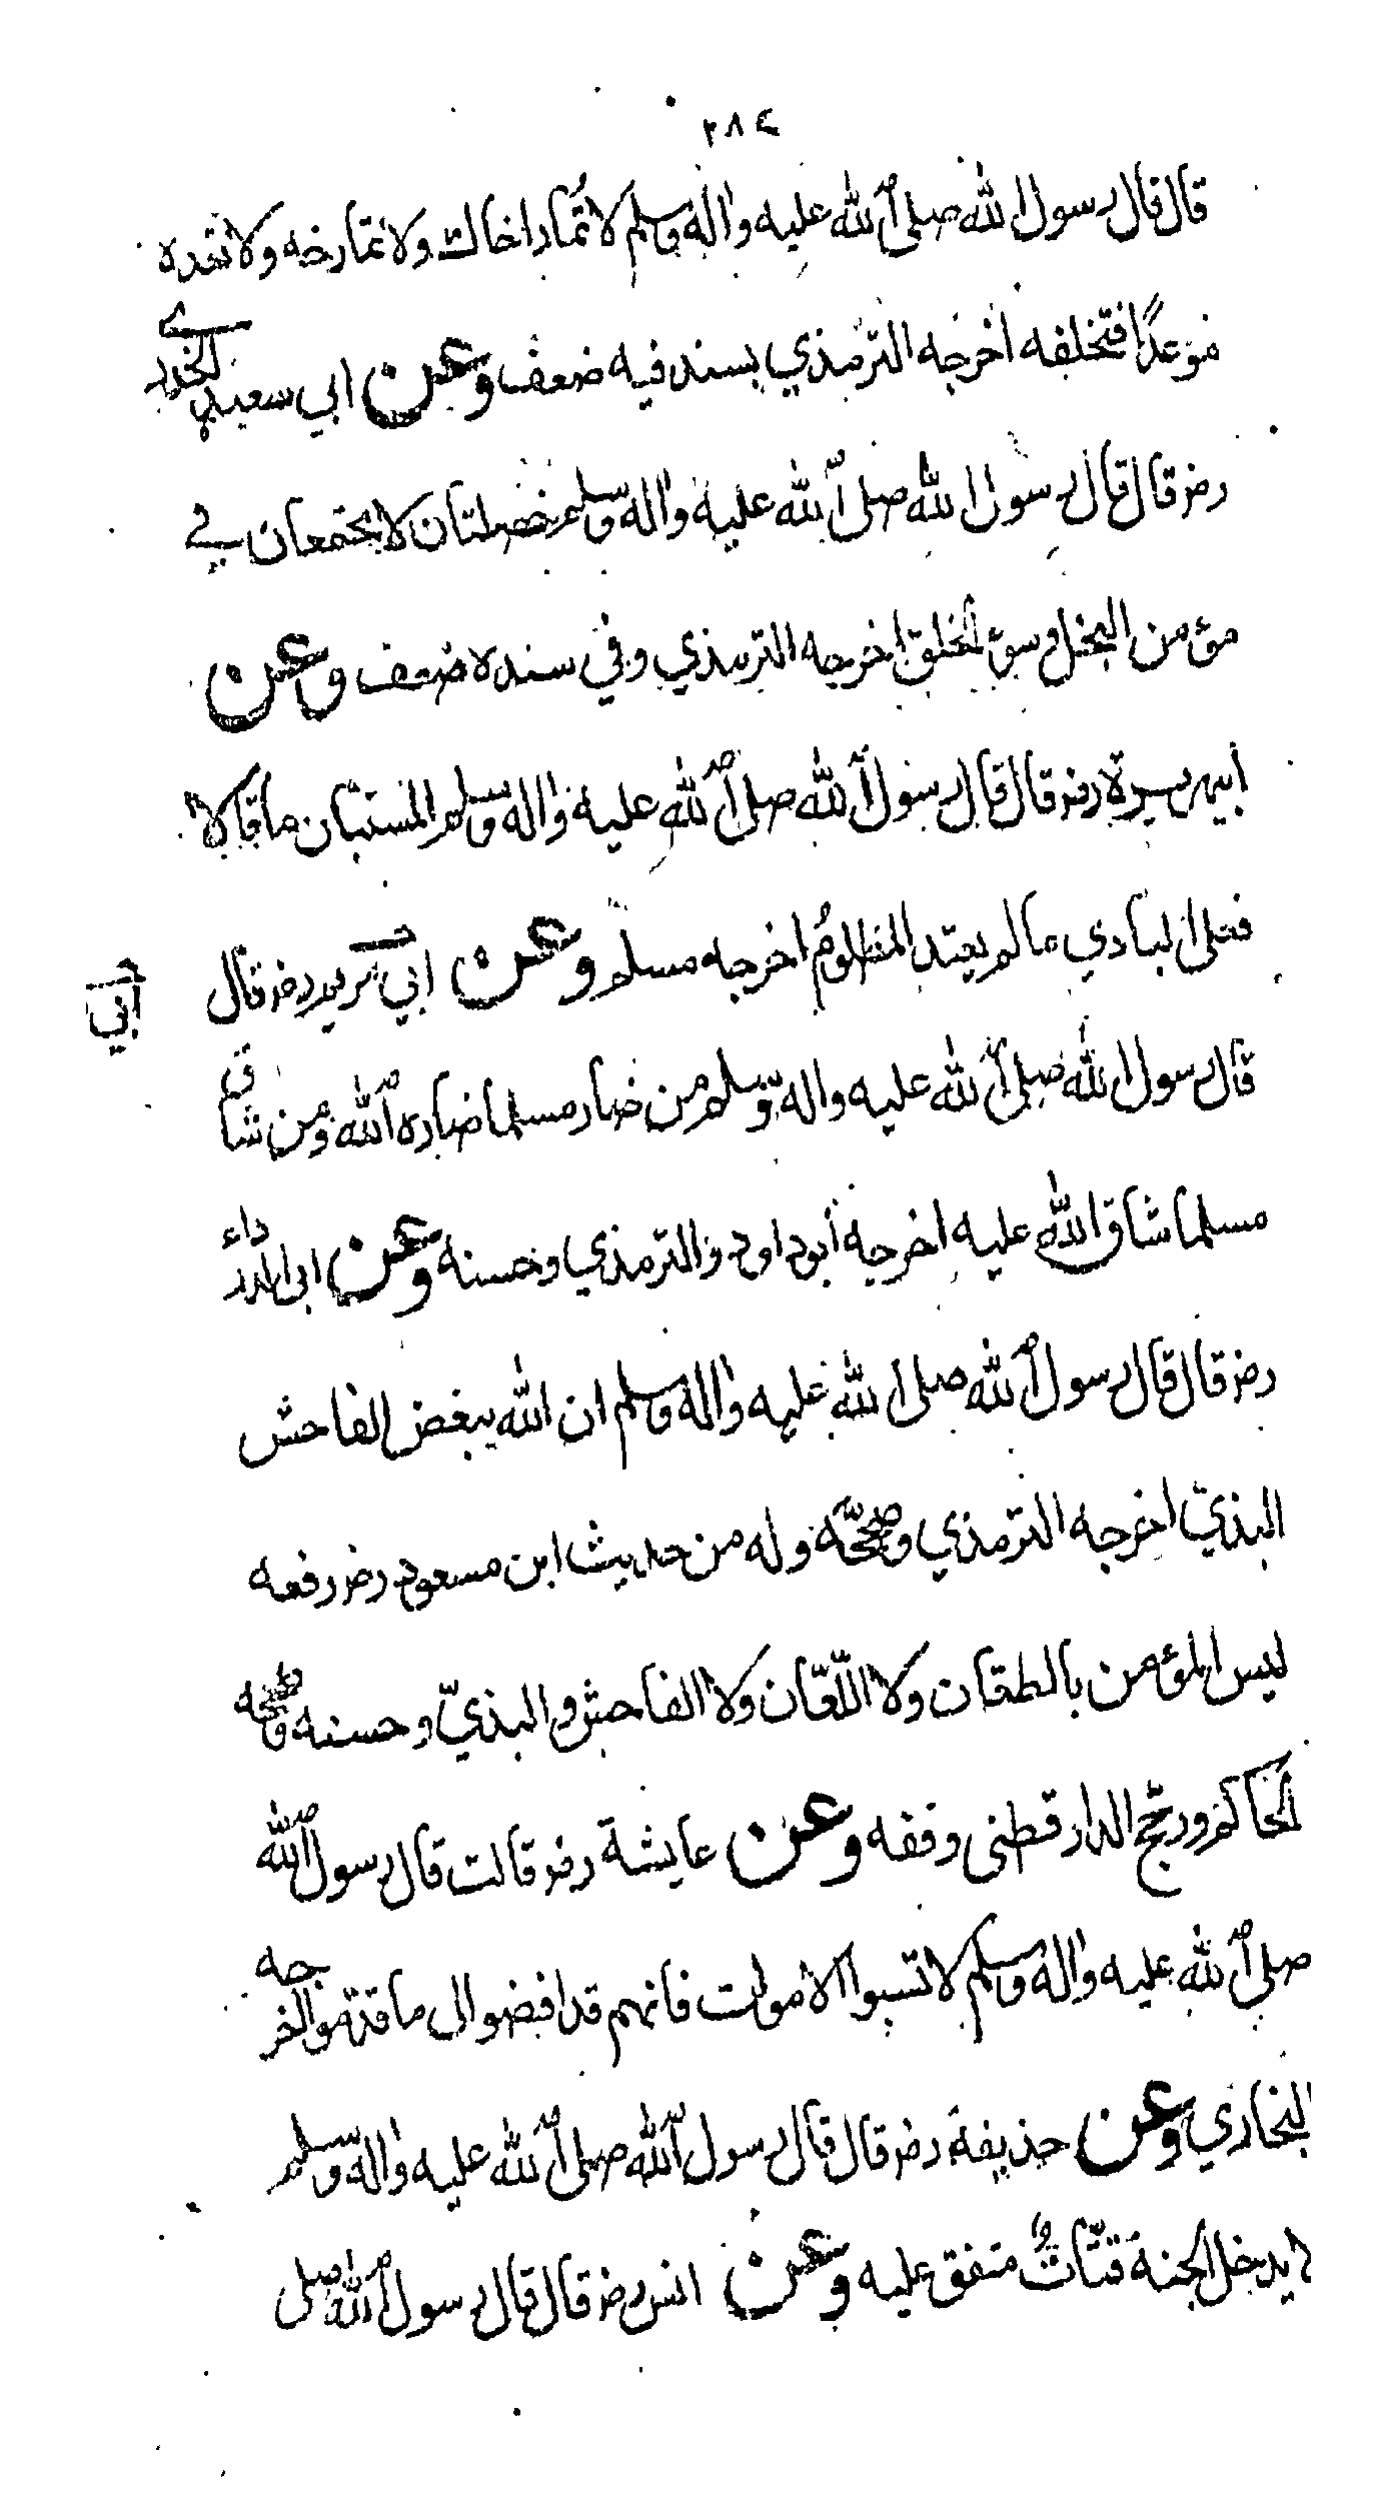 ٢٨٤
قال قال رسول الله صلى الله عليه واله وسلم لا تمار اخاك ولا تمازحه ولا تعده
موعدًا فتخلفه اخرجه الترمذي بسند فيه ضعف وعن ابي سعيد الخدري
رضر قال قال رسول الله صلى الله عليه واله وسلم خصلتان لا يجتمعان في
مؤمن البخل وسؤ الخلق اخرجه الترمذي وفي سنده ضعف وعن
ابيهريرة رضر قال قال رسول الله صلى الله عليه واله وسلم المستبان ما قالا
فعلى البادي ما لم يعتد المظلومُ اخرجه مسلم وعن ابي صرمة رضر قال
ابي
قال رسول الله صلى الله عليه واله وسلم من ضار مسلما ضاره الله ومن شاق
مسلما شاق الله عليه اخرجه ابوداود والترمذي وحسنه وعن ابى الدرداء
رضر قال قال رسول الله صلى الله عليه واله وسلم ان الله يبغض الفاحش
البذيّ اخرجه الترمذي وصحّحه وله من حديث ابن مسعود رضر رفعه
ليس المؤمن بالطعان ولا اللّعّان ولا الفاحش والبذيّ وحسنه وصححه
الحاكم ورجح الدارقطنى وقفه وعن عايشة رضر قالت قال رسول الله
صلى الله عليه واله وسلم لا تسبوا الاموات فانهم قد افضوا الى ما قدموا اخرجه
البخاري وعن حذيفة رضر قال قال رسول الله صلى الله عليه واله وسلم
لا يدخل الجنة قتّاتٌ متفق عليه وعن انس رضر قال قال رسول الله صلى